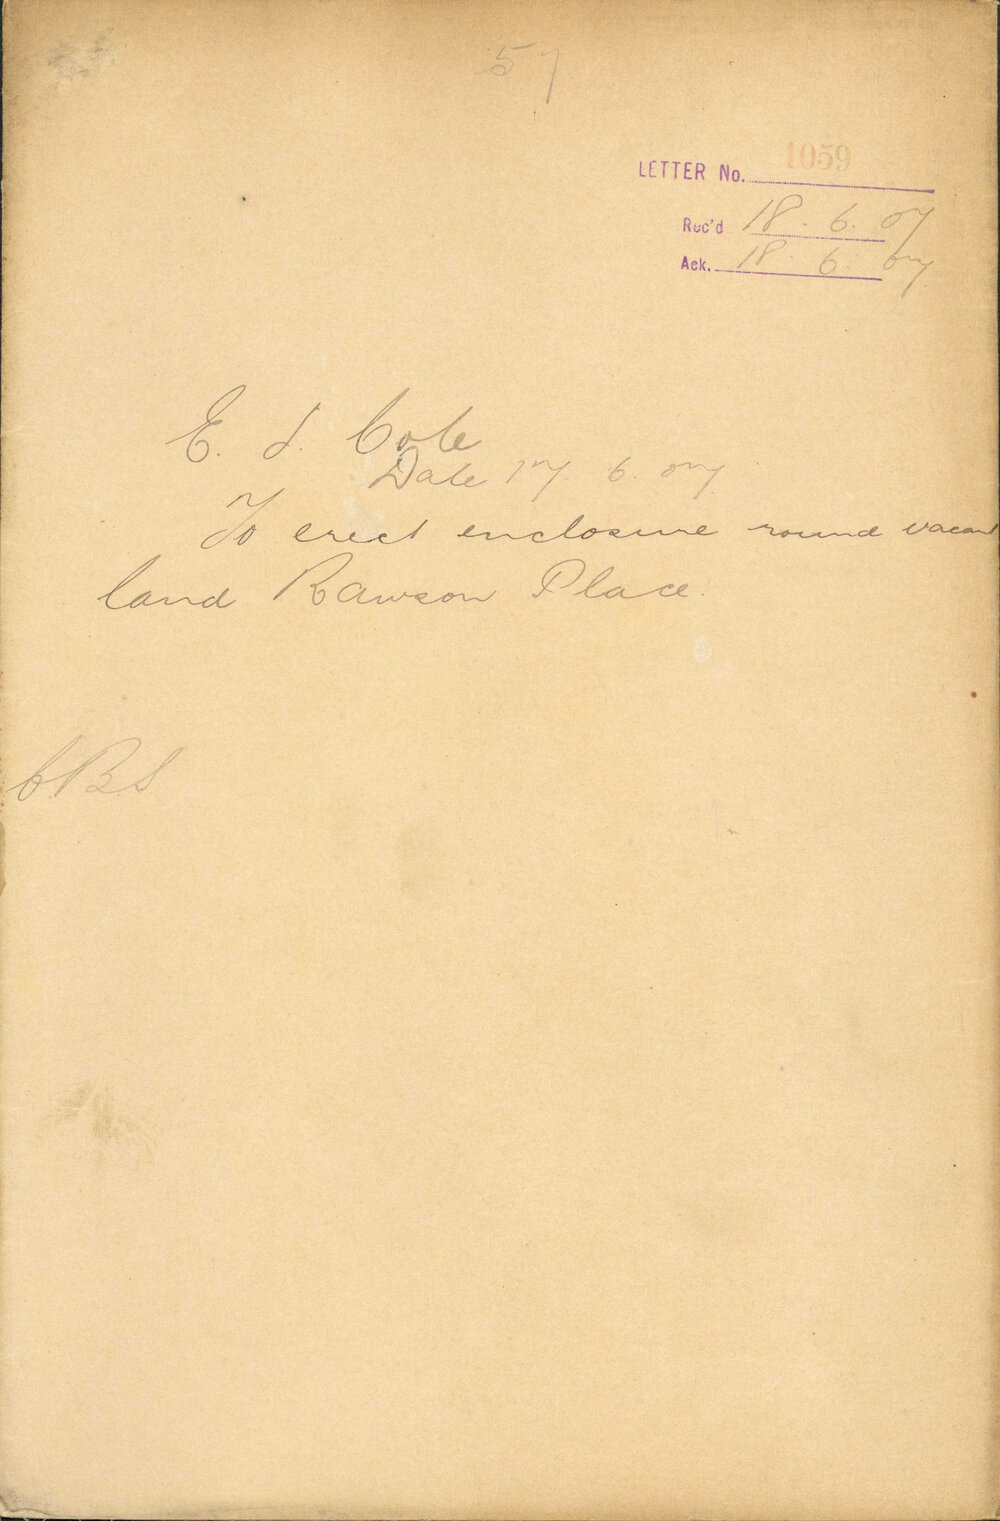 57
LETTER No. 1059
Rec'd 18.6.07
Ack. 18 6 07
E. J. Cole
Date 17.6.07
To erect enclosure round vacant
land Rawson Place.
CBS